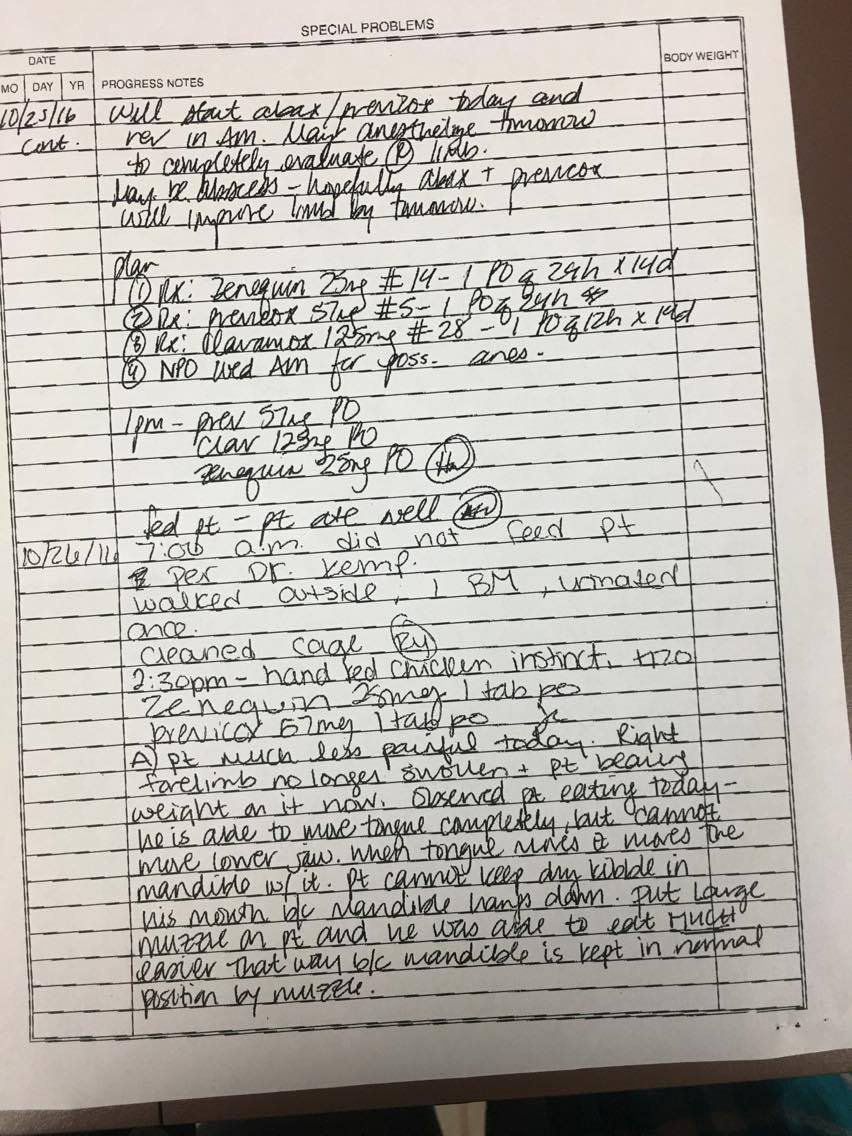 SPECIAL PROBLEMS
DATE
BODY WEIGHT
MO DAY YR PROGRESS NOTES
10/25/16 Will start abax/previcox today and
Cont. rev in AM. May anesthetize tmorrow
to completely evaluate (R) limb.
May be abscess - hopefully abax + previcox
will improve limb by tomorrow.
plan
(1) Rx: Zenequin 25mg #14 - 1 PO q 24h x 14d
(2) Rx: previcox 57mg #5 - 1 PO q 24h
(3) Rx: Clavamox 125mg #28 - 1 PO q 12h x 14d
(4) NPO Wed AM for poss. anes.
1pm - prev 57mg PO
Clav 125mg PO
Zenequin 25mg PO
fed pt - pt ate well
10/26/16 7:00 a.m. did not feed pt
per Dr. Kemp.
walked outside, 1 BM, urinated
once.
cleaned cage (Ry)
2:30pm - hand fed chicken instinct, H2O
Zenequin 25mg 1 tab po
previcox 57mg 1 tab po
A) pt much less painful today. Right
forelimb no longer swollen + pt bearing
weight on it now. Observed pt eating today -
he is able to move tongue completely, but cannot
move lower jaw. When tongue moves it moves the
mandible w/ it. Pt cannot keep dry kibble in
his mouth b/c mandible hangs down. Put Large
muzzle on pt and he was able to eat MUCH
easier that way b/c mandible is kept in normal
position by muzzle.